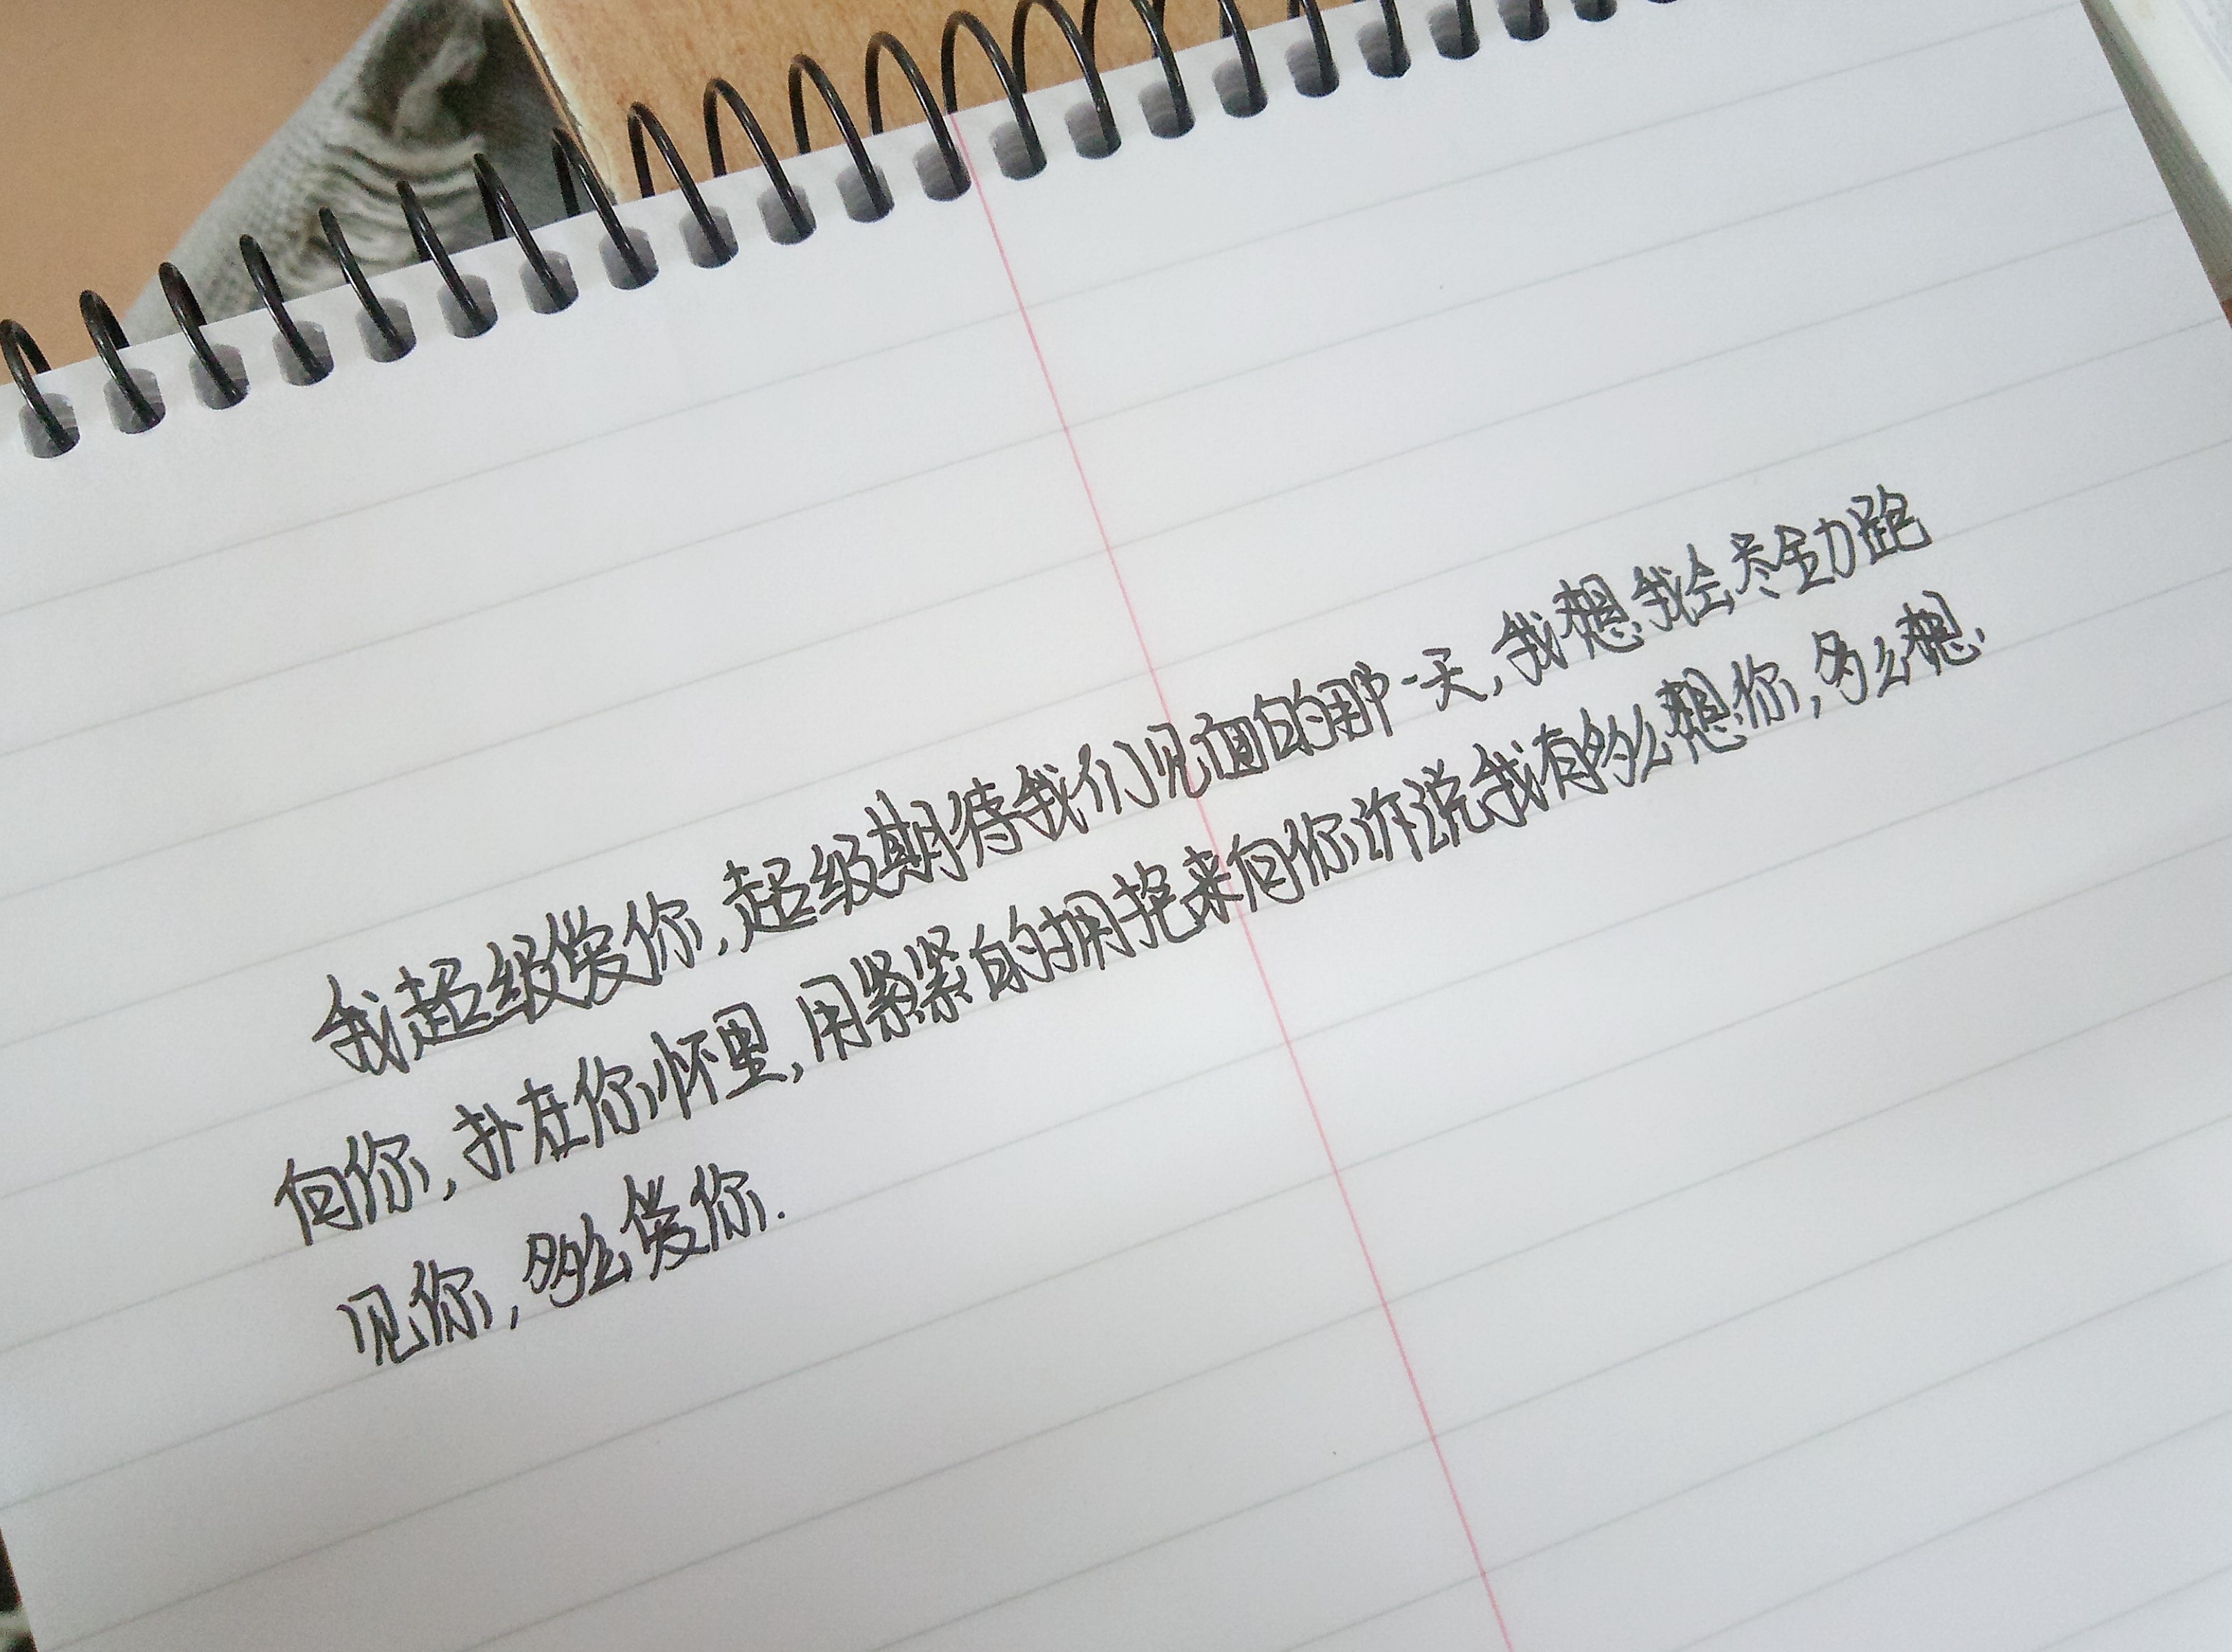 我超级爱你,超级期待我们见面的那一天,我想我会尽全力跑
向你,扑在你怀里,用紧紧的拥抱来向你诉说我有多么想你,多么想
见你,多么爱你.